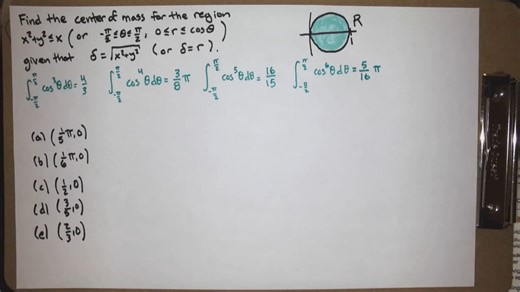 Find the center of mass for the region
x²+y² ≤ x (or -π/2 ≤ θ ≤ π/2, 0 ≤ r ≤ cosθ)
given that δ = √(x²+y²) (or δ = r).
R
1
∫_{-π/2}^{π/2} cos³θdθ = 4/3 ∫_{-π/2}^{π/2} cos⁴θdθ = 3/8 π ∫_{-π/2}^{π/2} cos⁵θdθ = 16/15 ∫_{-π/2}^{π/2} cos⁶θdθ = 5/16 π
(a) (1/5 π, 0)
(b) (1/6 π, 0)
(c) (1/2, 0)
(d) (3/5, 0)
(e) (2/3, 0)